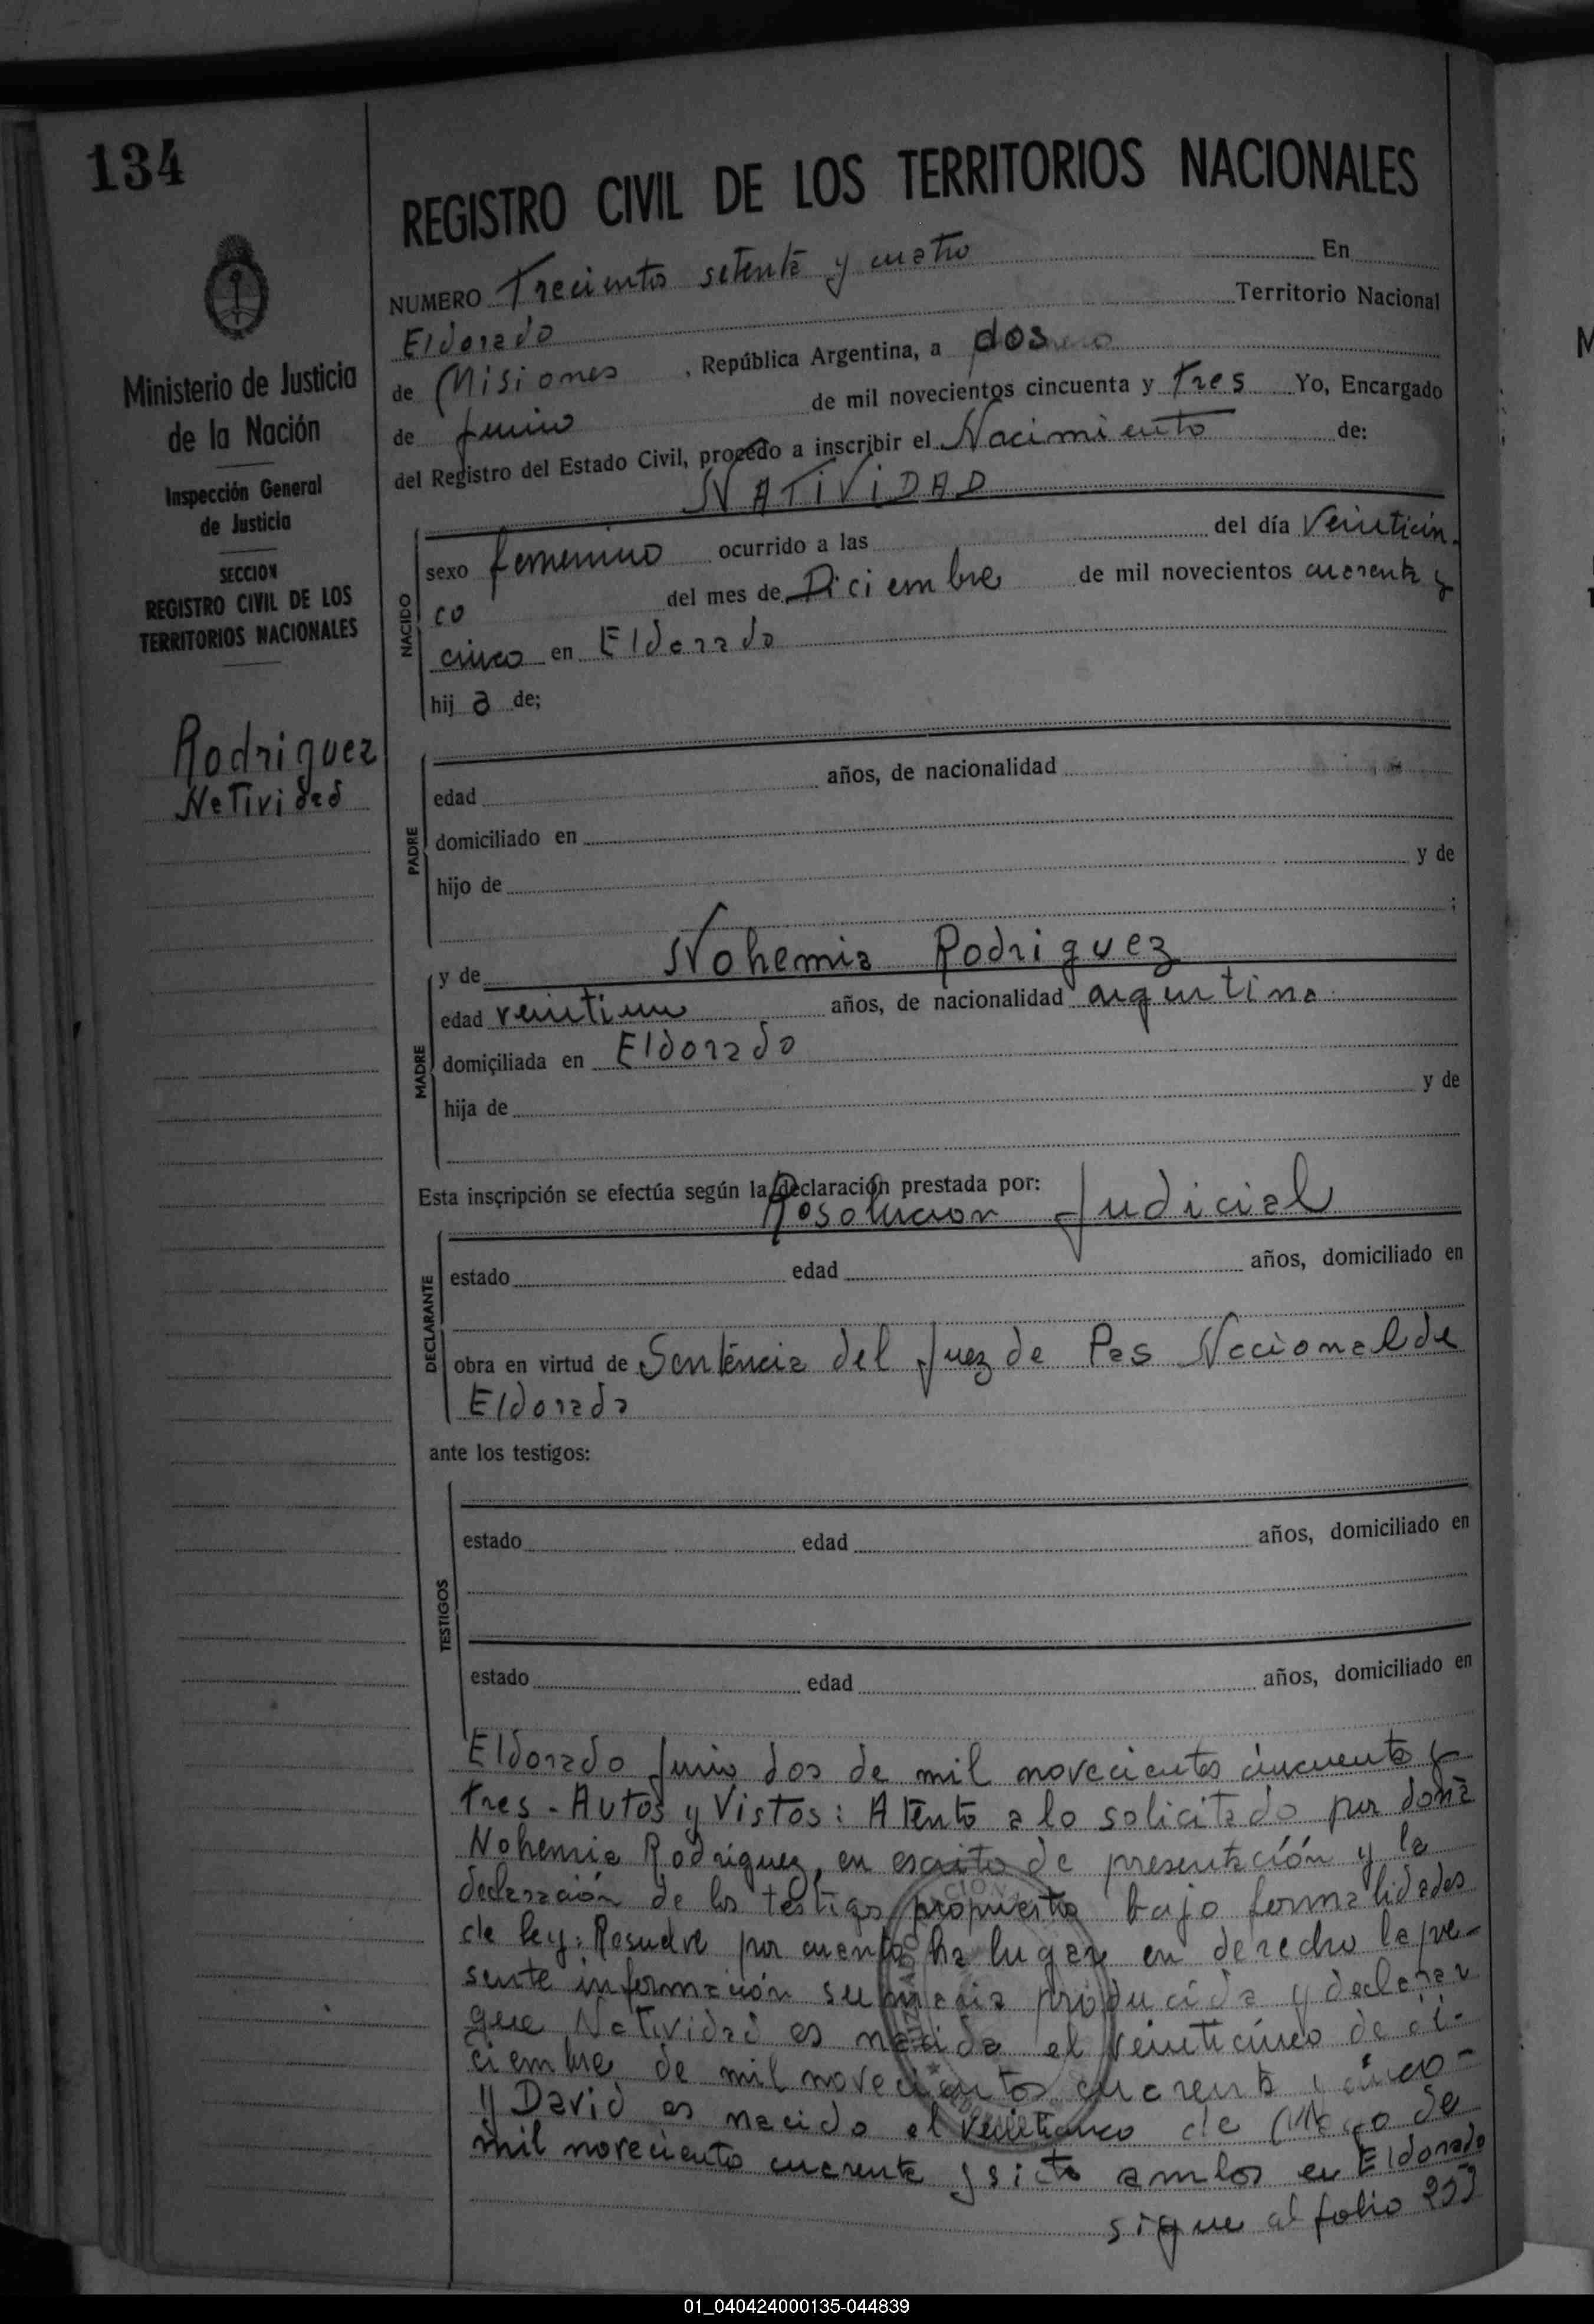 134
REGISTRO CIVIL DE LOS TERRITORIOS NACIONALES
Ministerio de Justicia
de la Nación
Inspección General
de Justicia
SECCION
REGISTRO CIVIL DE LOS
TERRITORIOS NACIONALES
Rodriguez
Natividad
NUMERO Treciento setenta y cuatro En
Eldorado Territorio Nacional
de Misiones, República Argentina, a dos
de junio de mil novecientos cincuenta y tres Yo, Encargado
del Registro del Estado Civil, procedo a inscribir el Nacimiento de:
NATIVIDAD
NACIDO
sexo femenino ocurrido a las del día Veinticin-
co del mes de Diciembre de mil novecientos cuarenta y
cinco en Eldorado
hij a de;
PADRE
edad años, de nacionalidad
domiciliado en
hijo de y de
;
MADRE
y de Nohemia Rodriguez
edad veintiun años, de nacionalidad argentina
domiciliada en Eldorado
hija de y de
Esta inscripción se efectúa según la declaración prestada por:
Resolucion Judicial
DECLARANTE
estado edad años, domiciliado en
obra en virtud de Senténcia del Juez de Pas Nacional de
Eldorado
ante los testigos:
TESTIGOS
estado edad años, domiciliado en
estado edad años, domiciliado en
Eldorado Junio dos de mil novecientos cincuenta y
tres - Autos y Vistos: Atento a lo solicitado por doña
Nohemia Rodriguez, en escrito de presentación y la
declaración de los testigos propuestos bajo formalidades
de ley: Resuelve por cuanto ha lugar en derecho la pre-
sente información sumaria producida y declarar
que Natividad es nacida el veinticinco de di-
ciembre de mil novecientos cuarenta y cinco -
y David es nacido el veinticinco de Mayo de
mil noveciento cuarenta y siete ambos en Eldorado
sigue al folio
01_040424000135-044839